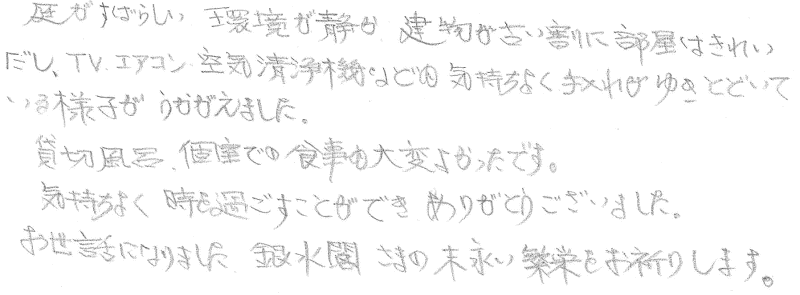 庭がすばらしい 環境が静か 建物が古い割に部屋はきれい
だし、TV.エアコン 空気清浄機などの気持ちよく手入れがゆきとどいて
いる様子がうかがえました。
貸切風呂、個室での食事も大変よかったです。
気持ちよく時を過ごすことができありがとうございました。
お世話になりました 銀水閣さまの末永い繁栄をお祈りします。